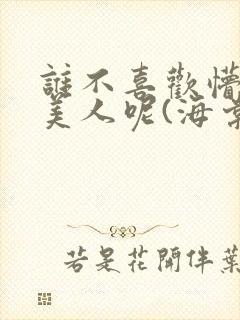 誰不喜歡懵
美人呢(海棠
若是花開伴葉